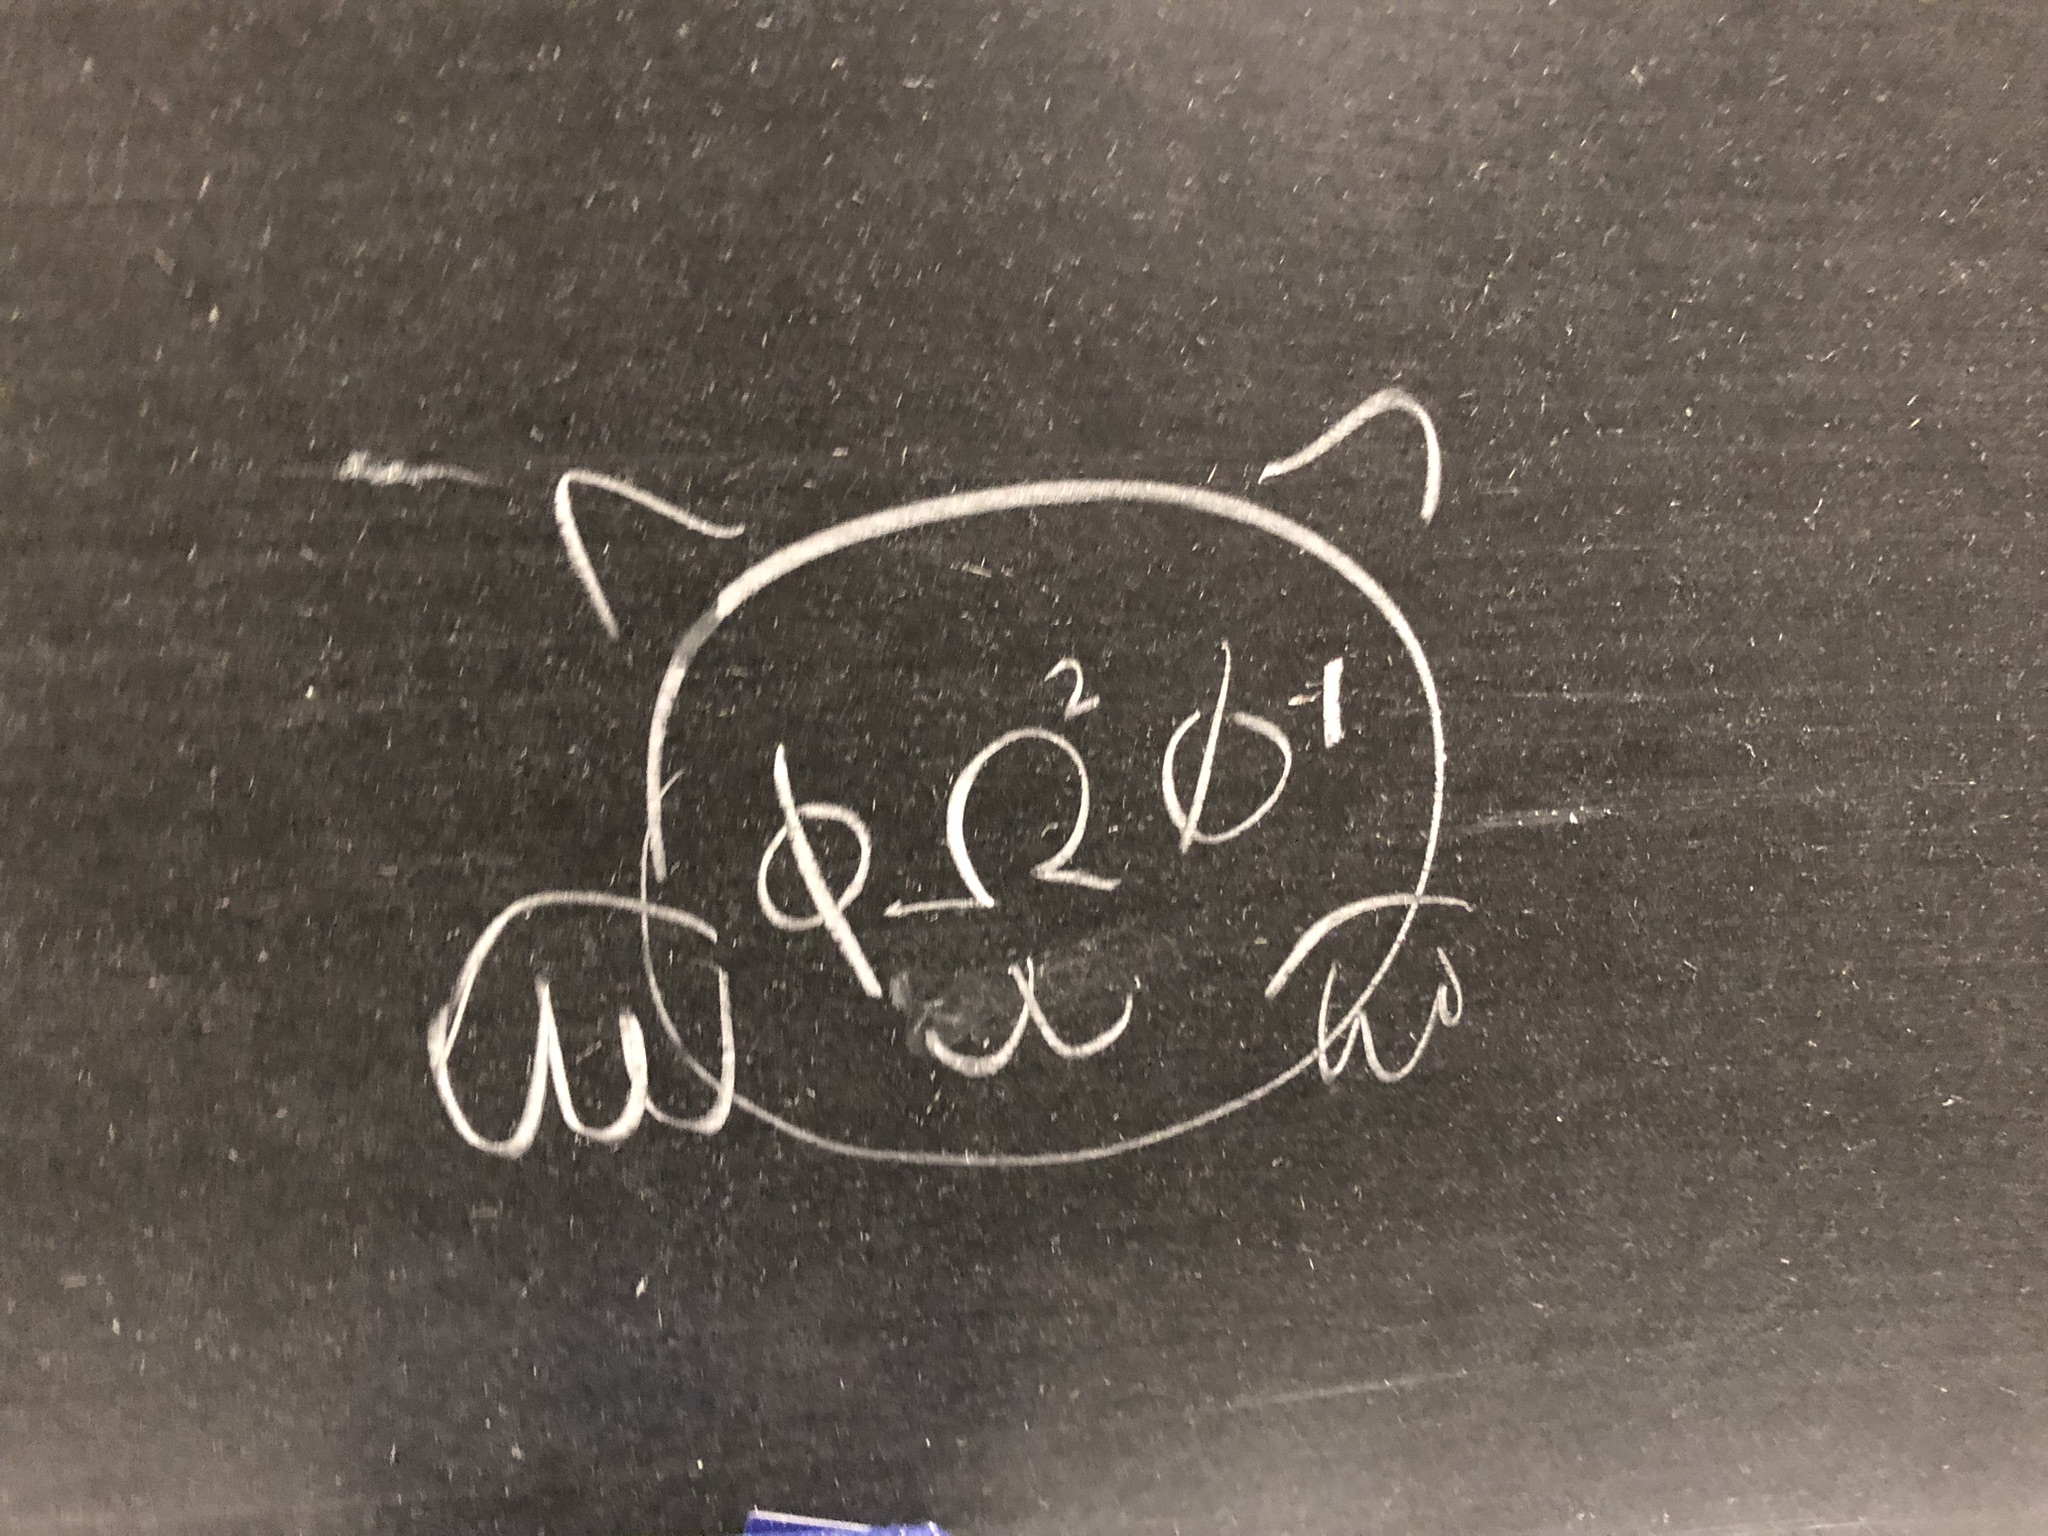 ϕΩ²ϕ⁻¹